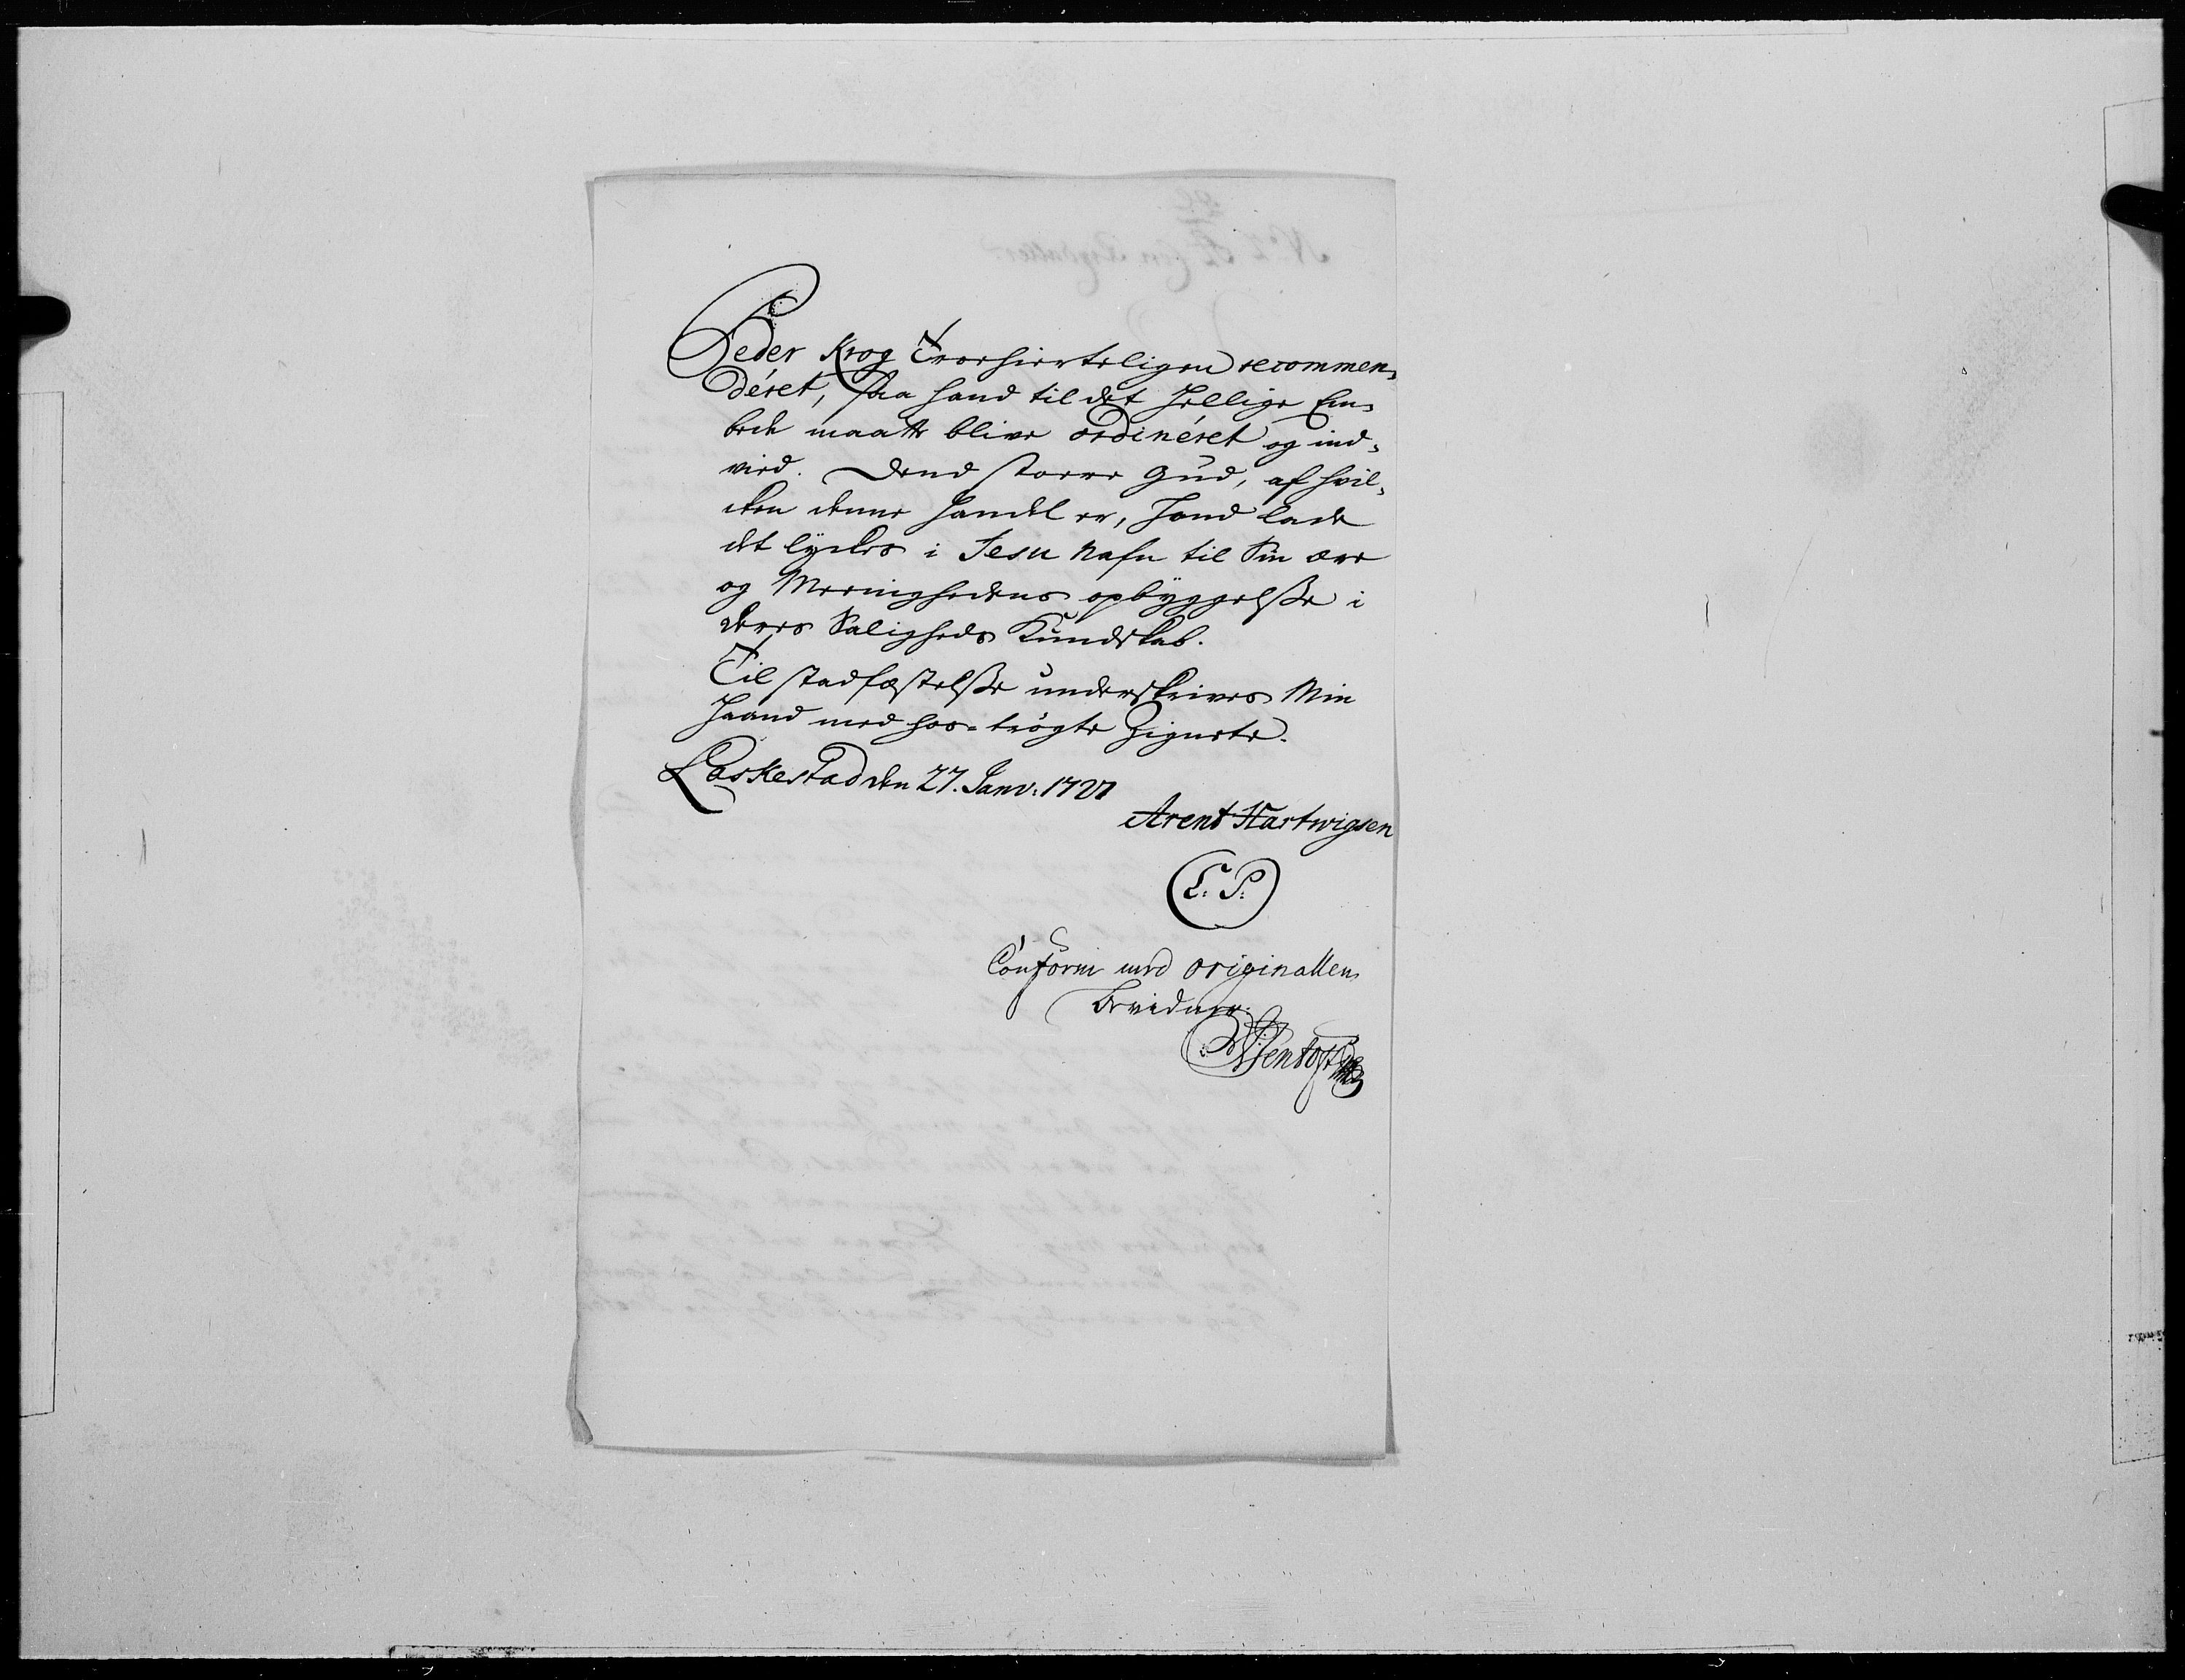 Peder Krog Troehierteligen recommen-
déret, Saa hand til det Hellige Em-
bede maatte blive ordinéret og ind-
vied. Dend stoere Gud, af hvil-
cken denne Handel er, Hand lade
det lyckes i Jesu Nafn til Sin ære
og Meenighedens opbyggelsse i
deres Saligheds Kundskab.
Til stadfæstelsse underskrives Min
Haand med hos-trögte Zignete.
Leskestad den 27. Janv: 1727
Arent Hartwigsen
L: S:
Conform med originallen
Bevidner